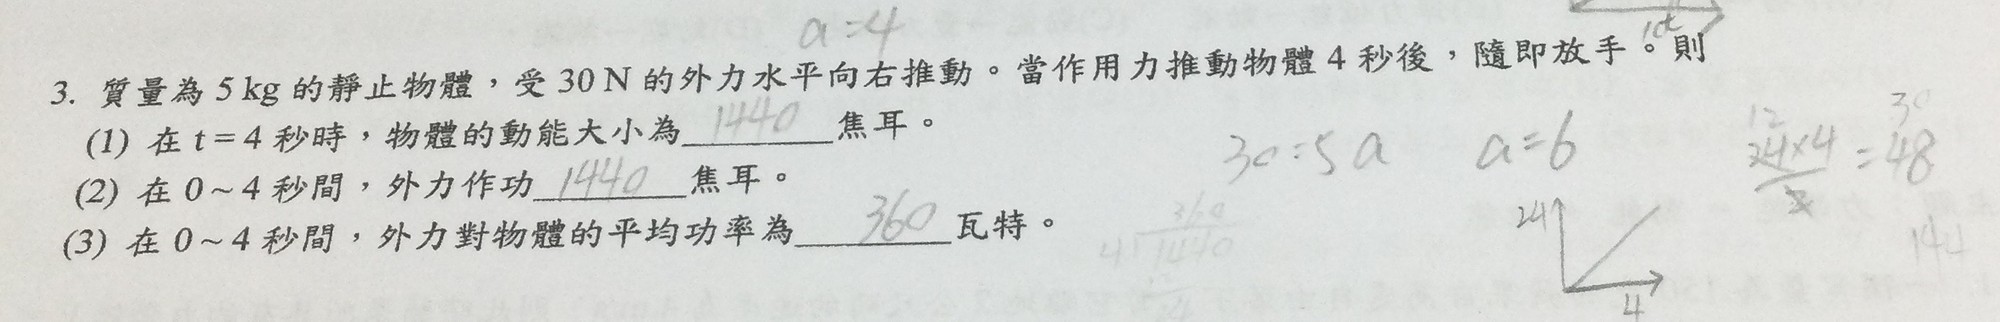 a=4
3. 質量為 5 kg 的靜止物體，受 30 N 的外力水平向右推動。當作用力推動物體 4 秒後，隨即放手。則
(1) 在 t = 4 秒時，物體的動能大小為 1440 焦耳。
(2) 在 0 ~ 4 秒間，外力作功 1440 焦耳。
(3) 在 0 ~ 4 秒間，外力對物體的平均功率為 360 瓦特。
30=5a a=6
12 30
24×4 = 48
2
24
4
360
4 1440
144